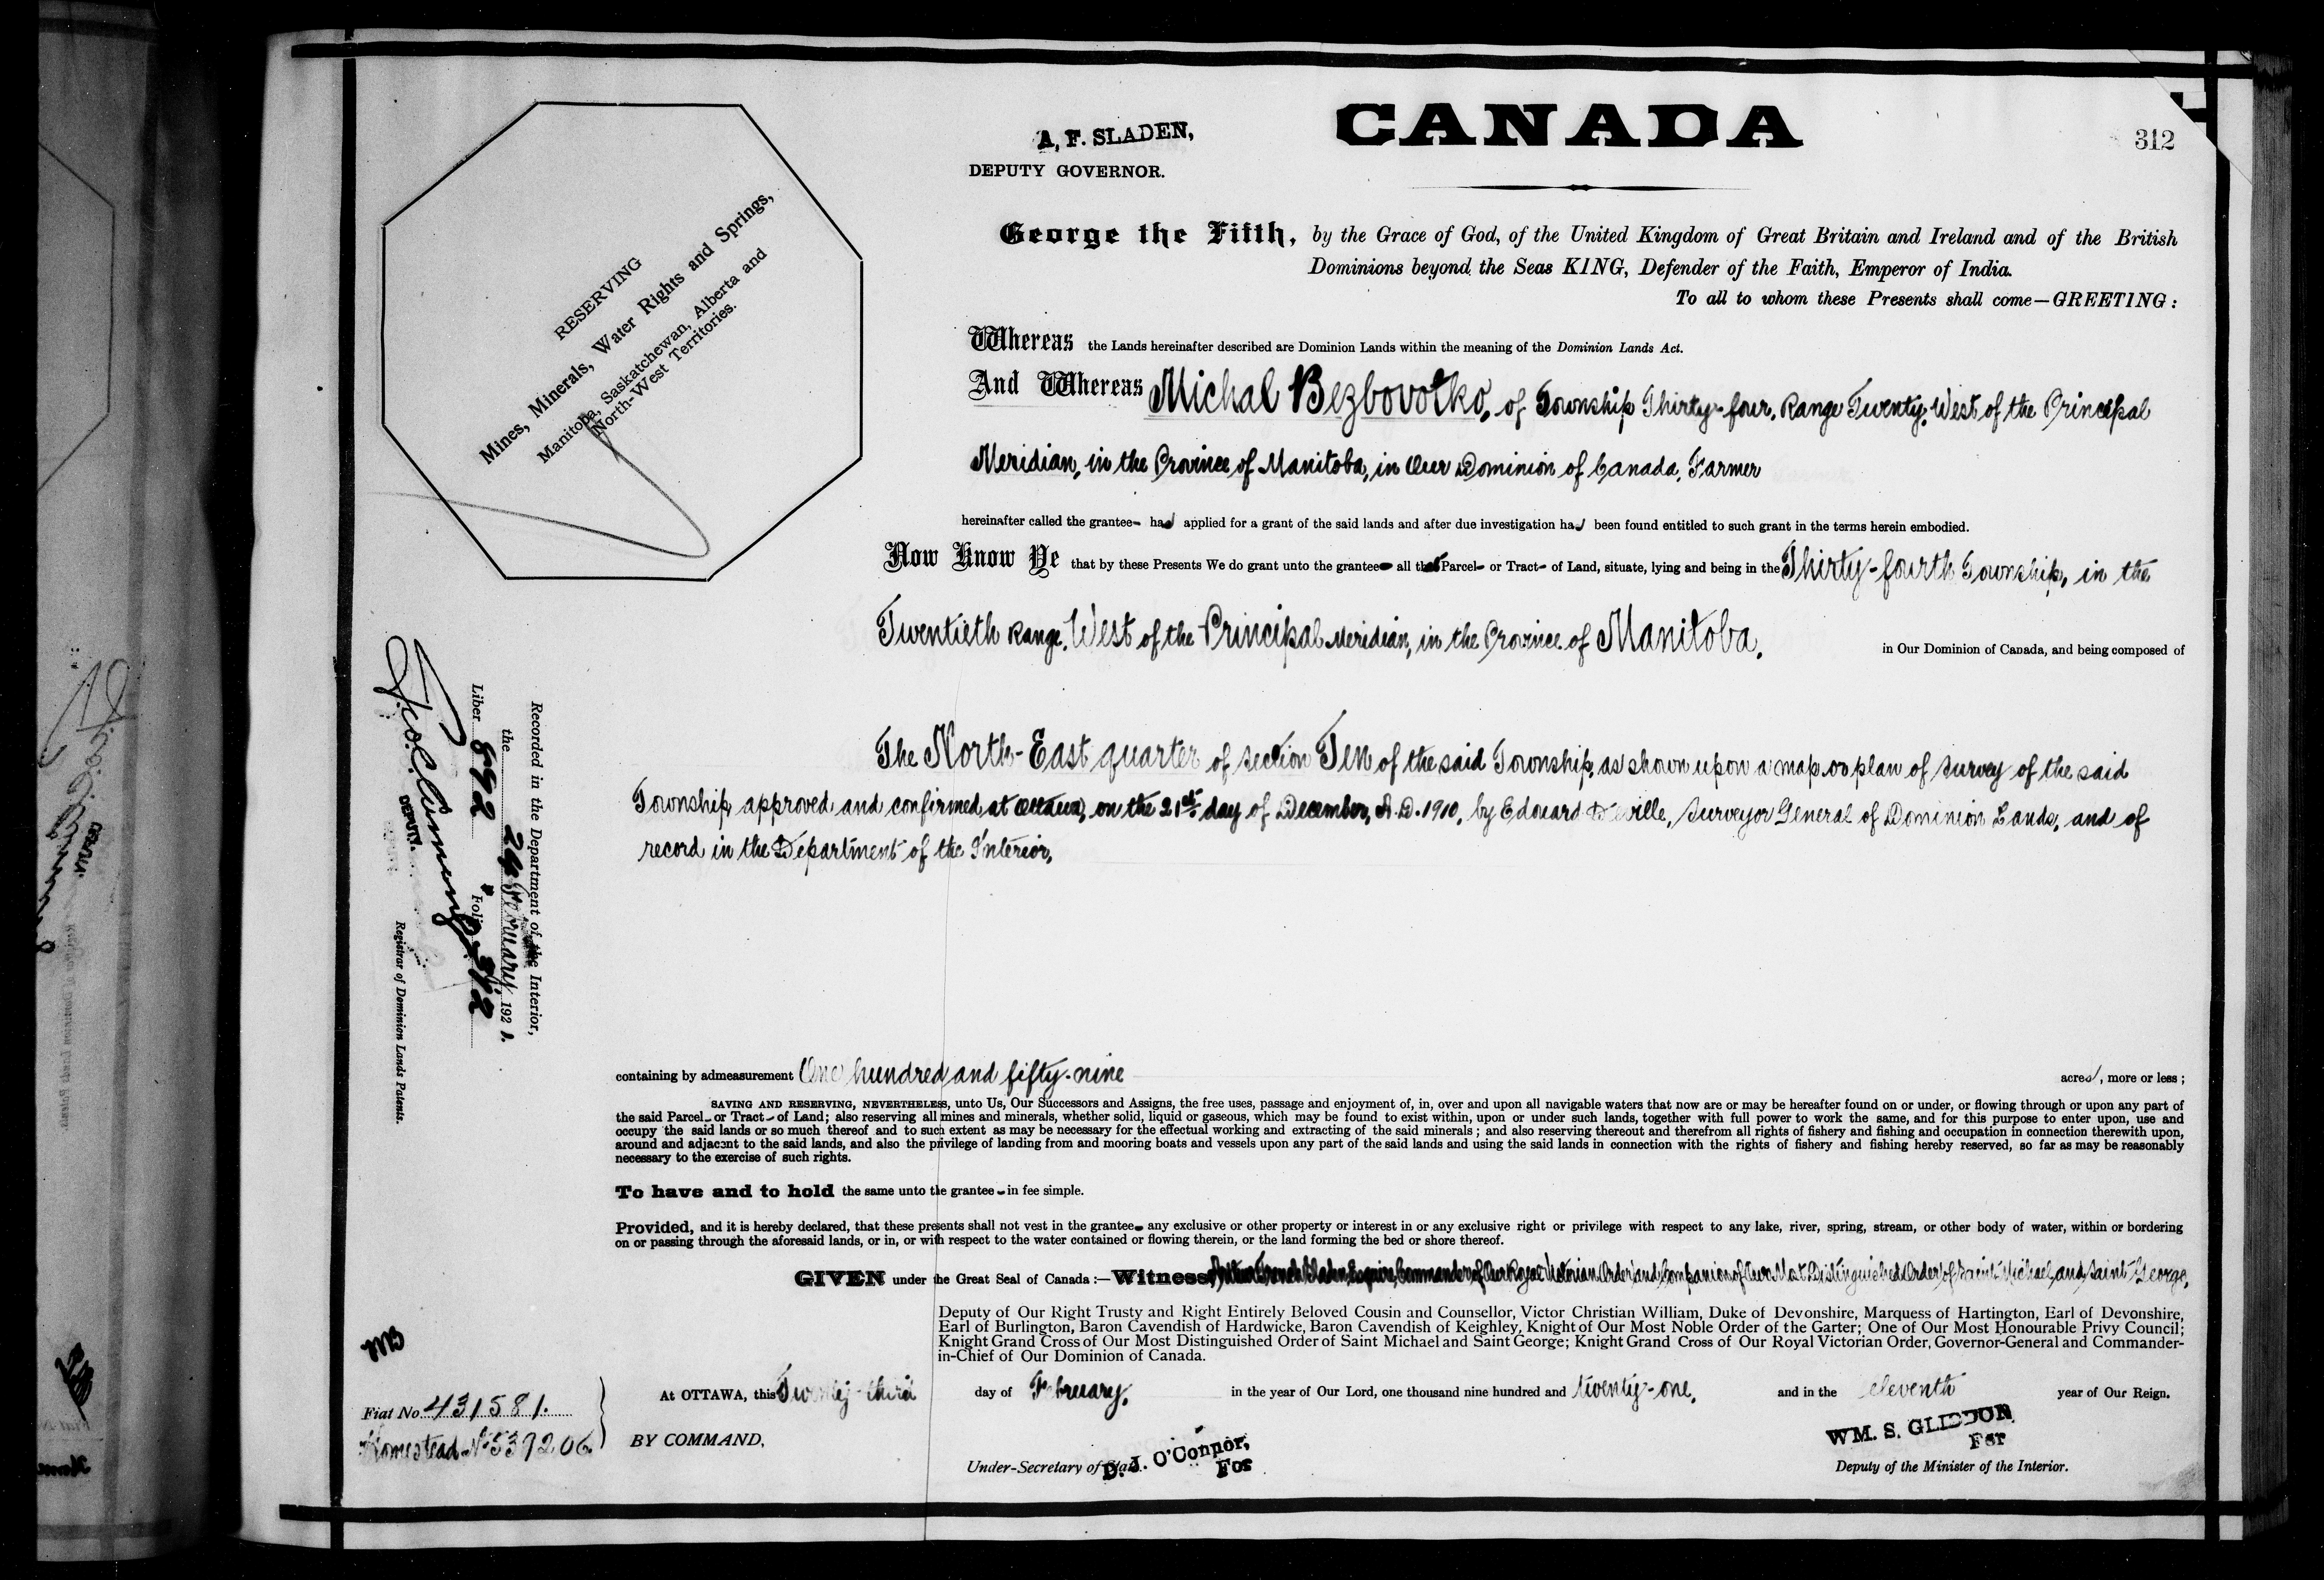 CANADA
312
A. F. SLADEN,
DEPUTY GOVERNOR.
RESERVING
Mines, Minerals, Water Rights and Springs,
Manitoba, Saskatchewan, Alberta and
North-West Territories.
George the Fifth, by the Grace of God, of the United Kingdom of Great Britain and Ireland and of the British
Dominions beyond the Seas KING, Defender of the Faith, Emperor of India.
To all to whom these Presents shall come—GREETING:
Whereas the Lands hereinafter described are Dominion Lands within the meaning of the Dominion Lands Act.
And Whereas Michal Bezbovotko, of Township Thirty-four, Range Twenty, West of the Principal
Meridian, in the Province of Manitoba, in Our Dominion of Canada, Farmer
hereinafter called the grantee has applied for a grant of the said lands and after due investigation has been found entitled to such grant in the terms herein embodied.
Now Know Ye that by these Presents We do grant unto the grantee all that Parcel or Tract of Land, situate, lying and being in the Thirty-fourth Township, in the
Twentieth Range, West of the Principal Meridian, in the Province of Manitoba, in Our Dominion of Canada, and being composed of
The North-East quarter of section Ten of the said Township, as shown upon a map or plan of survey of the said
Township, approved and confirmed at Ottawa, on the 21st day of December, A.D. 1910, by Edouard Deville, Surveyor General of Dominion Lands, and of
record in the Department of the Interior,
containing by admeasurement One hundred and fifty-nine acres, more or less;
SAVING AND RESERVING, NEVERTHELESS, unto Us, Our Successors and Assigns, the free uses, passage and enjoyment of, in, over and upon all navigable waters that now are or may be hereafter found on or under, or flowing through or upon any part of
the said Parcel or Tract of Land; also reserving all mines and minerals, whether solid, liquid or gaseous, which may be found to exist within, upon or under such lands, together with full power to work the same, and for this purpose to enter upon, use and
occupy the said lands or so much thereof and to such extent as may be necessary for the effectual working and extracting of the said minerals; and also reserving thereout and therefrom all rights of fishery and fishing and occupation in connection therewith upon,
around and adjacent to the said lands, and also the privilege of landing from and mooring boats and vessels upon any part of the said lands and using the said lands in connection with the rights of fishery and fishing hereby reserved, so far as may be reasonably
necessary to the exercise of such rights.
To have and to hold the same unto the grantee in fee simple.
Provided, and it is hereby declared, that these presents shall not vest in the grantee any exclusive or other property or interest in or any exclusive right or privilege with respect to any lake, river, spring, stream, or other body of water, within or bordering
on or passing through the aforesaid lands, or in, or with respect to the water contained or flowing therein, or the land forming the bed or shore thereof.
GIVEN under the Great Seal of Canada:—Witness, Arthur French Sladen, Esquire, Commander of Our Royal Victorian Order, and Companion of Our Most Distinguished Order of Saint Michael and Saint George,
Deputy of Our Right Trusty and Right Entirely Beloved Cousin and Counsellor, Victor Christian William, Duke of Devonshire, Marquess of Hartington, Earl of Devonshire,
Earl of Burlington, Baron Cavendish of Hardwicke, Baron Cavendish of Keighley, Knight of Our Most Noble Order of the Garter; One of Our Most Honourable Privy Council;
Knight Grand Cross of Our Most Distinguished Order of Saint Michael and Saint George; Knight Grand Cross of Our Royal Victorian Order, Governor-General and Commander-
in-Chief of Our Dominion of Canada.
At OTTAWA, this Twenty-third day of February, in the year of Our Lord, one thousand nine hundred and twenty-one, and in the eleventh year of Our Reign.
BY COMMAND,
D. J. O'Connor,
For
Under-Secretary of State.
WM. S. GLIDDON
For
Deputy of the Minister of the Interior.
Fiat No. 431581.
Homestead No. 537206
Recorded in the Department of the Interior,
the 24 February, 1921.
Liber 892 Folio 312
DEPUTY.
Registrar of Dominion Lands Patents.